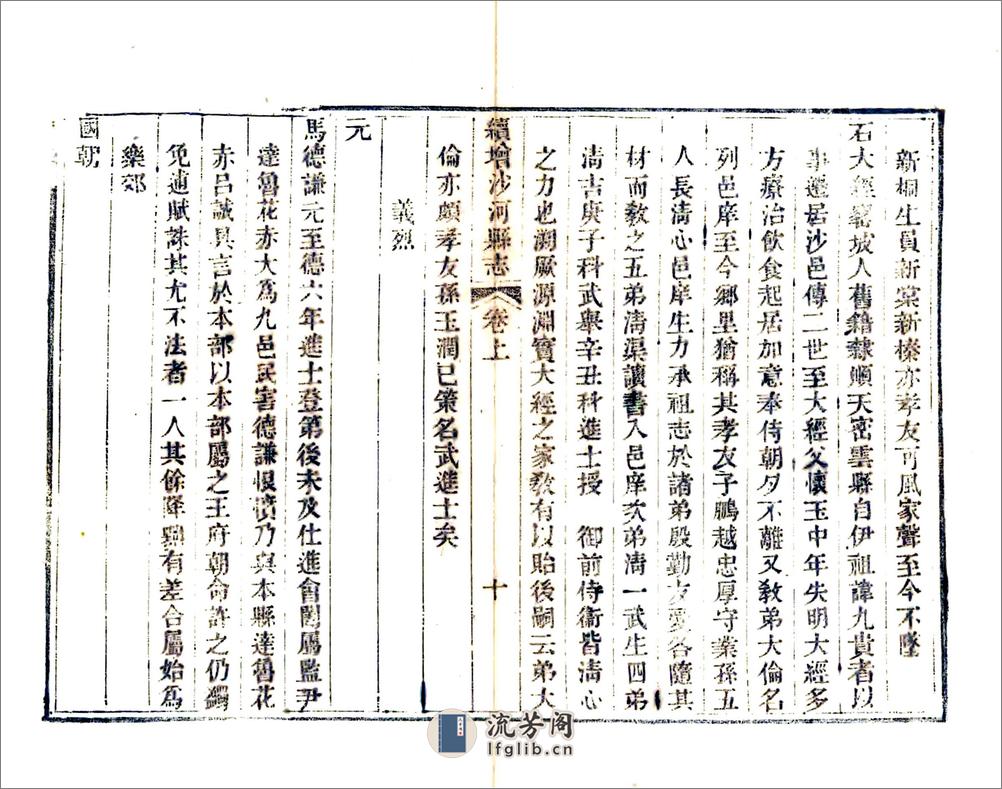 新桐生員新棠新榛亦孝友可風家聲至今不墜
石大經窰坡人舊籍隸順天密雲縣自伊祖諱九貴者以
事遷居沙邑傳二世至大經父懷玉中年失明大經多
方療治飲食起居加意奉侍朝夕不離又教弟大倫名
列邑庠至今鄉里猶稱其孝友子鵬越忠厚守業孫五
人長淸心邑庠生力承祖志於諸弟殷勤友愛各隨其
材而敎之五弟淸渠讀書入邑庠次弟淸一武生四弟
淸吉庚子科武舉辛丑科進士授 御前侍衞皆淸心
之力也溯厥源淵實大經之家敎有以貽後嗣云弟大
倫亦頗孝友孫玉潤已策名武進士矣
續增沙河縣志 卷上 十
義烈
元
馬德謙元至德六年進士登第後未及仕進會閏屬監尹
達魯花赤大爲九邑民害德謙恨憤乃與本縣達魯花
赤呂誠具言於本部以本部屬之王府朝命許之仍蠲
免逋賦誅其尤不法者一人其餘降黜有差合屬始爲
樂郊
國朝
流芳阁
lfglib.cn